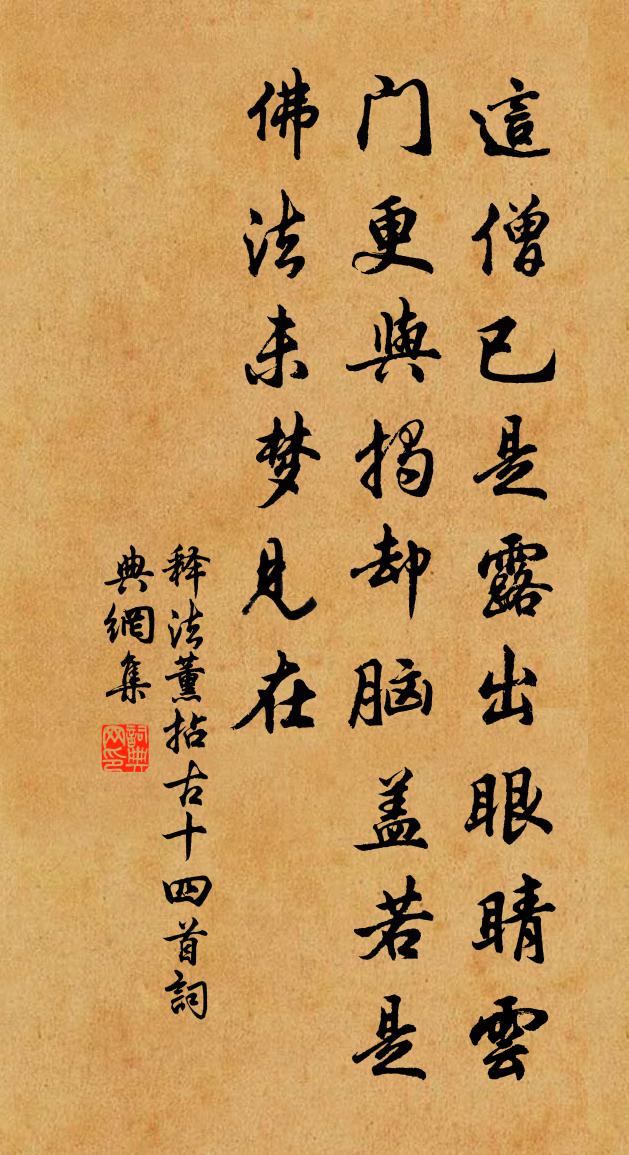 這僧已是露出眼睛雲
门更與揭却脑盖若是
佛法未梦見在
释法薰拈古十四首詞
典網集
詞典
网印